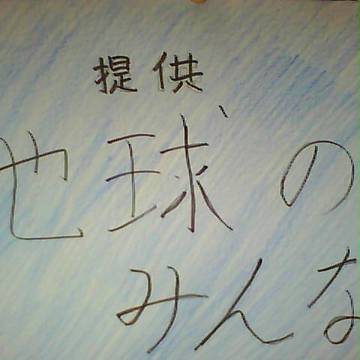 提供
地球の
みんな